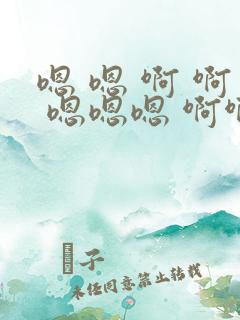 嗯 嗯 啊 啊
嗯嗯嗯 啊
子
未经同意禁止转载